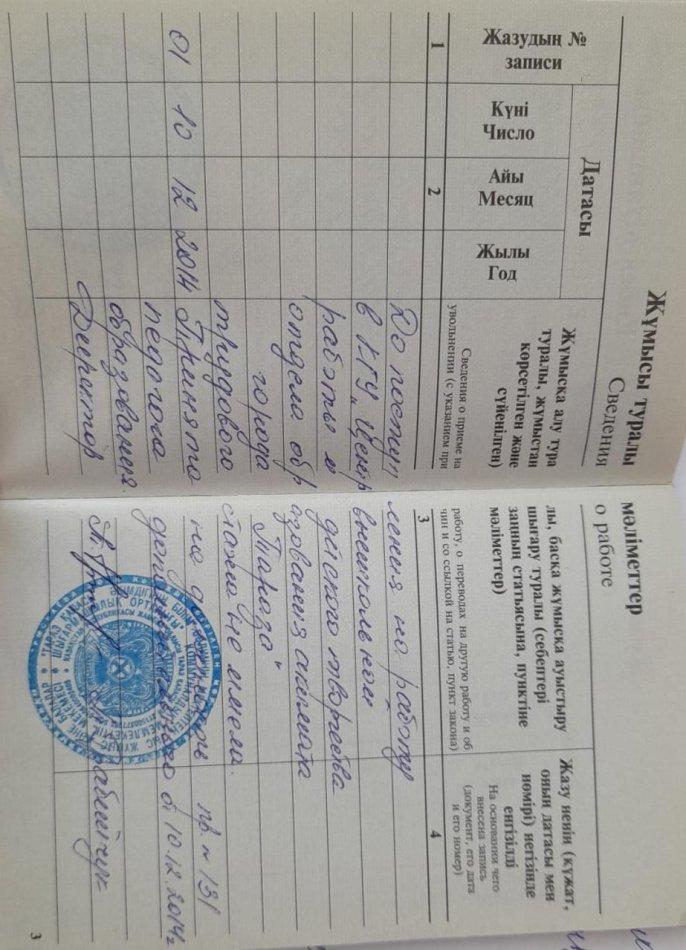 Жұмысы туралы мәліметтер
Сведения о работе
Жазудың №
записи
Датасы
Күні
Число
Айы
Месяц
Жылы
Год
Жұмысқа алу тура
лы, басқа жұмысқа ауыстыру
туралы, жұмыстан
шығару туралы (себептері
көрсетілген және
заңның статьясына, пунктіне
сүйенілген)
мәліметтер)
Сведения о приеме на
работу, о переводах на другую работу и об
увольнении (с указанием при
чин и со ссылкой на статью, пункт закона)
Жазу ненің (құжат,
оның датасы мен
нөмірі) негізінде
енгізілді
На основании чего
внесена запись
(документ, его дата
и его номер)
1 2 3 4
До поступ ления на работу
в КГУ „Центр внешкольной
работы и детского творчества
отдела обр азования акимата
города Тараза"
трудового стажа не имела.
01 10 12 2014 Принята на должность пр. № 131
педагога дополнительного от 10.12.2014г
образования.
Директор
3